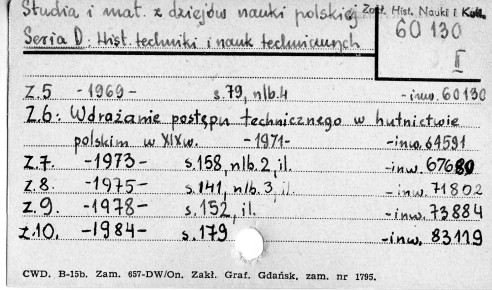 Studia i mat. z dziejów nauki polskiej Zakł. Hist. Nauki i Kult.
Seria D: Hist. techniki i nauk technicznych
60 130
II
Z.5 -1969- s.79, nlb.4 -inw. 60130
Z.6: Wdrażanie postępu technicznego w hutnictwie
polskim w XIX w. -1971- -inw. 64591
Z.7. -1973- s.158, nlb.2, il. -inw. 67680
Z.8. -1975- s.141, nlb.3, il. -inw. 71802
Z.9. -1978- s.152, il. -inw. 73884
Z.10. -1984- s.179 -inw. 83119
CWD. B-15b. Zam. 657-DW/On. Zakł. Graf. Gdańsk, zam. nr 1795.